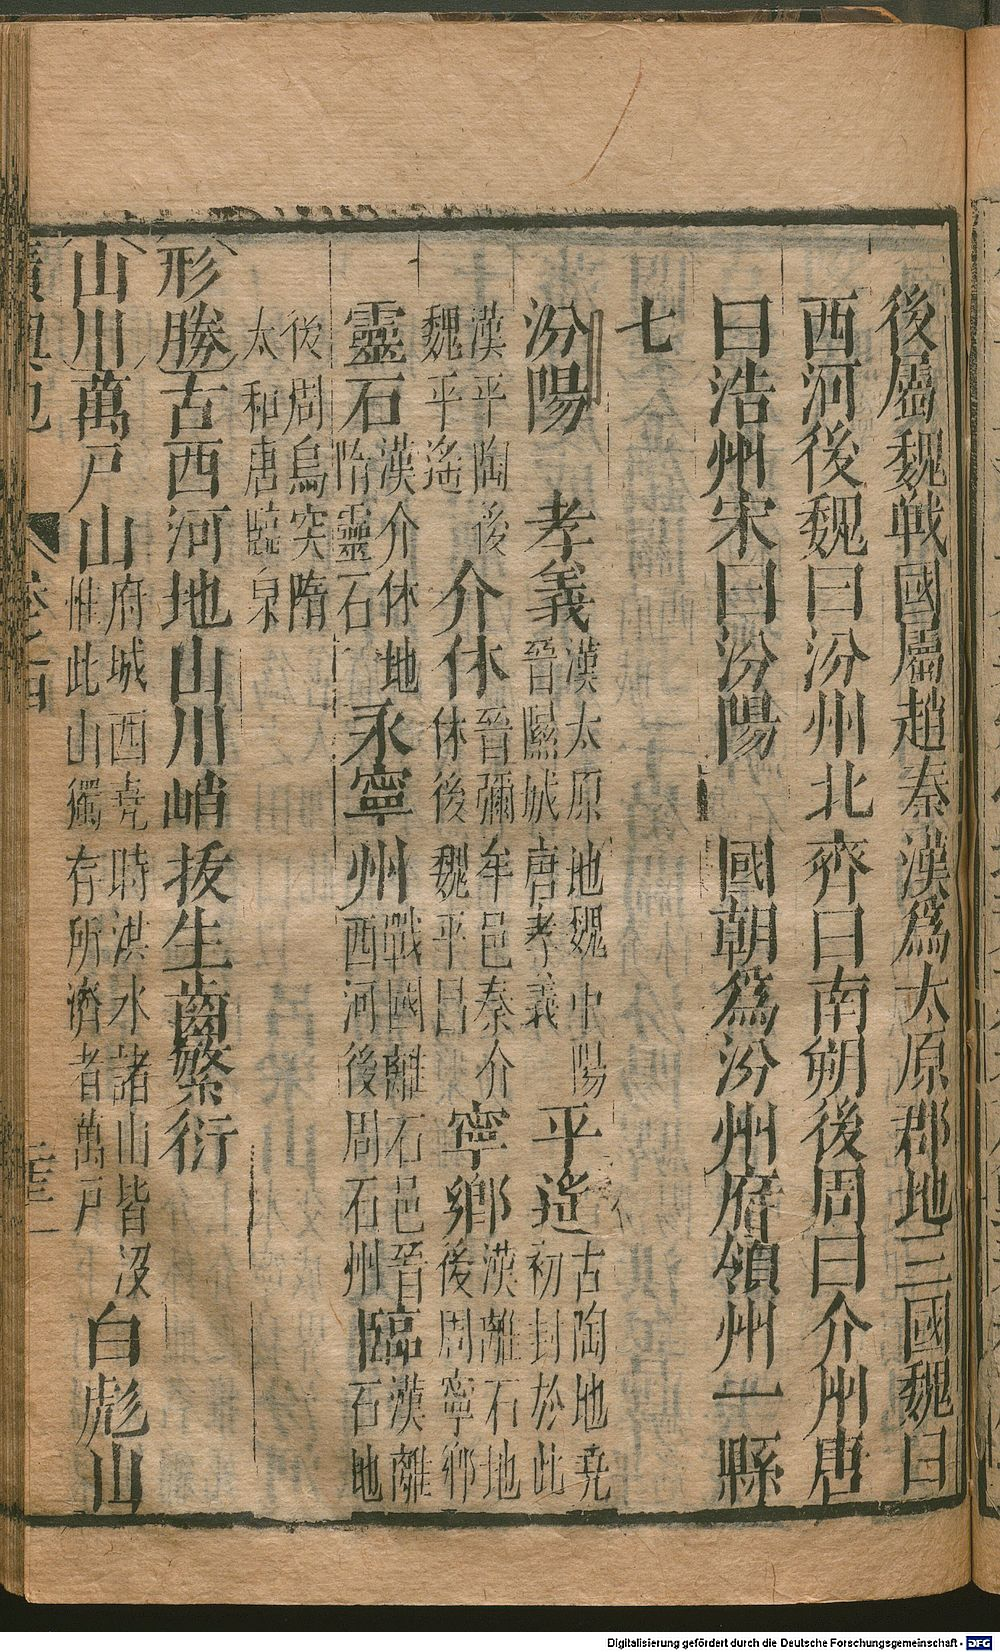 後屬魏戰國屬趙秦漢爲太原郡地三國魏曰
西河後魏曰汾州北齊曰南朔後周曰介州唐
曰浩州宋曰汾陽 國朝爲汾州府領州一縣
七
汾陽 孝義漢太原地魏中陽晉隰城唐孝義 平遙古陶地堯初封於此
漢平陶後魏平遙 介休晉彌牟邑秦介休後魏平昌 寧鄉漢離石地後周寧鄉
靈石漢介休地隋靈石 永寧州戰國離石邑晉西河後周石州 臨漢離石地
後周烏突隋太和唐臨泉
形勝古西河地山川峭拔生齒繁衍
山川萬戶山府城西堯時洪水諸山皆沒惟此山獨存所濟者萬戶 白彪山
Digitalisierung gefördert durch die Deutsche Forschungsgemeinschaft - DFG